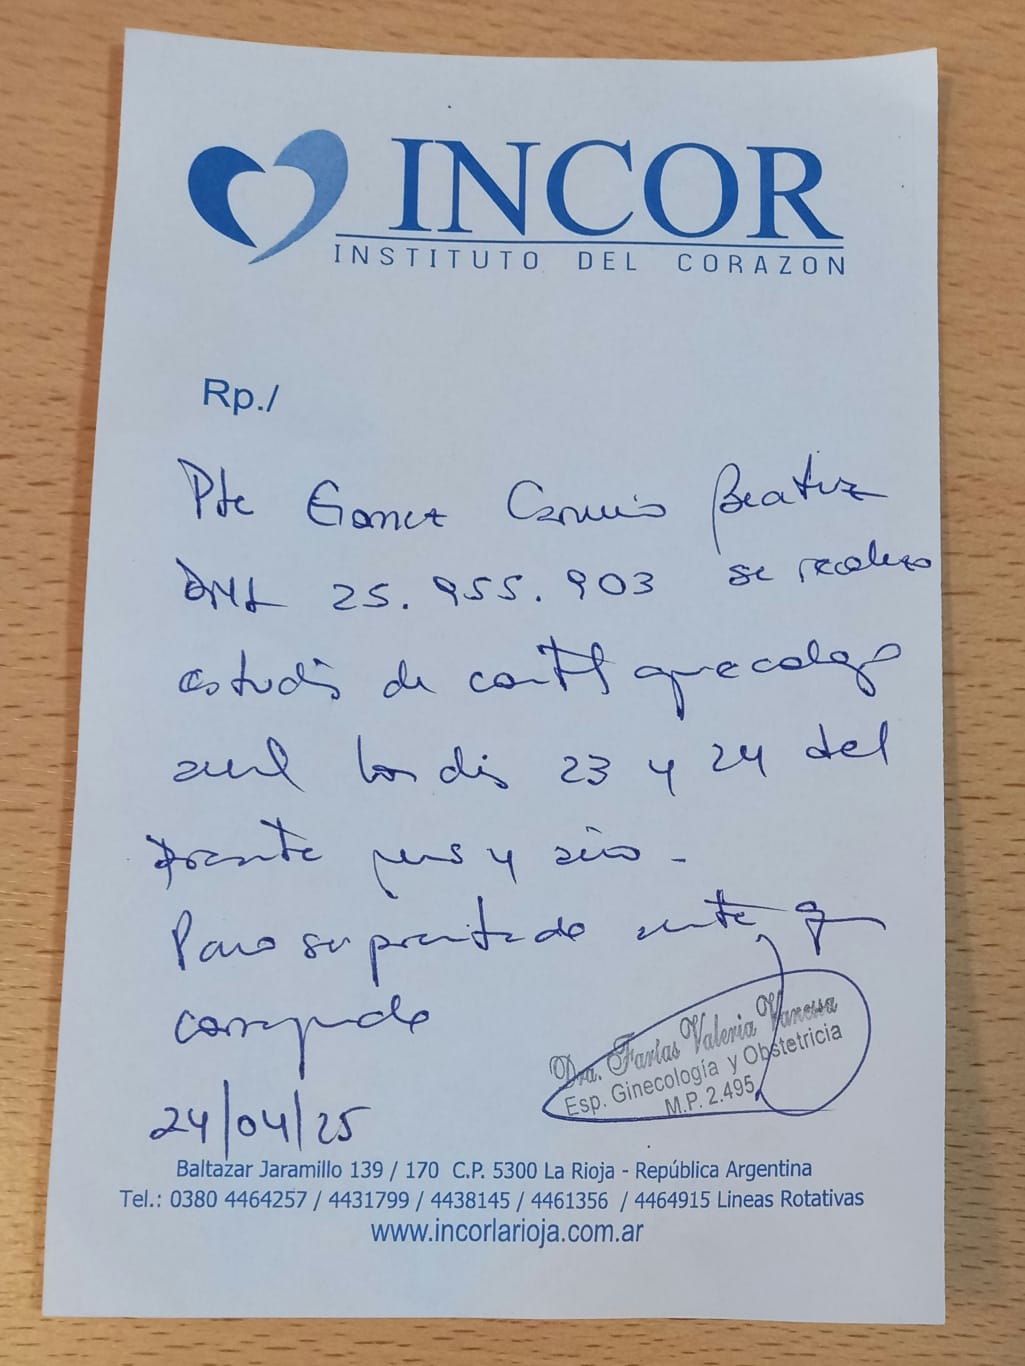 INCOR
INSTITUTO DEL CORAZON
Rp./
Pte Gomez Beatriz
DNI 25.955.903 se realizo
estudio de control ginecologo
anual los dias 23 y 24 del
presente mes y año -
Para ser presentado ante q
corresponda
Dra. Farías Valeria Vanessa
Esp. Ginecología y Obstetricia
M.P. 2.495
24/04/25
Baltazar Jaramillo 139 / 170 C.P. 5300 La Rioja - República Argentina
Tel.: 0380 4464257 / 4431799 / 4438145 / 4461356 / 4464915 Lineas Rotativas
www.incorlarioja.com.ar